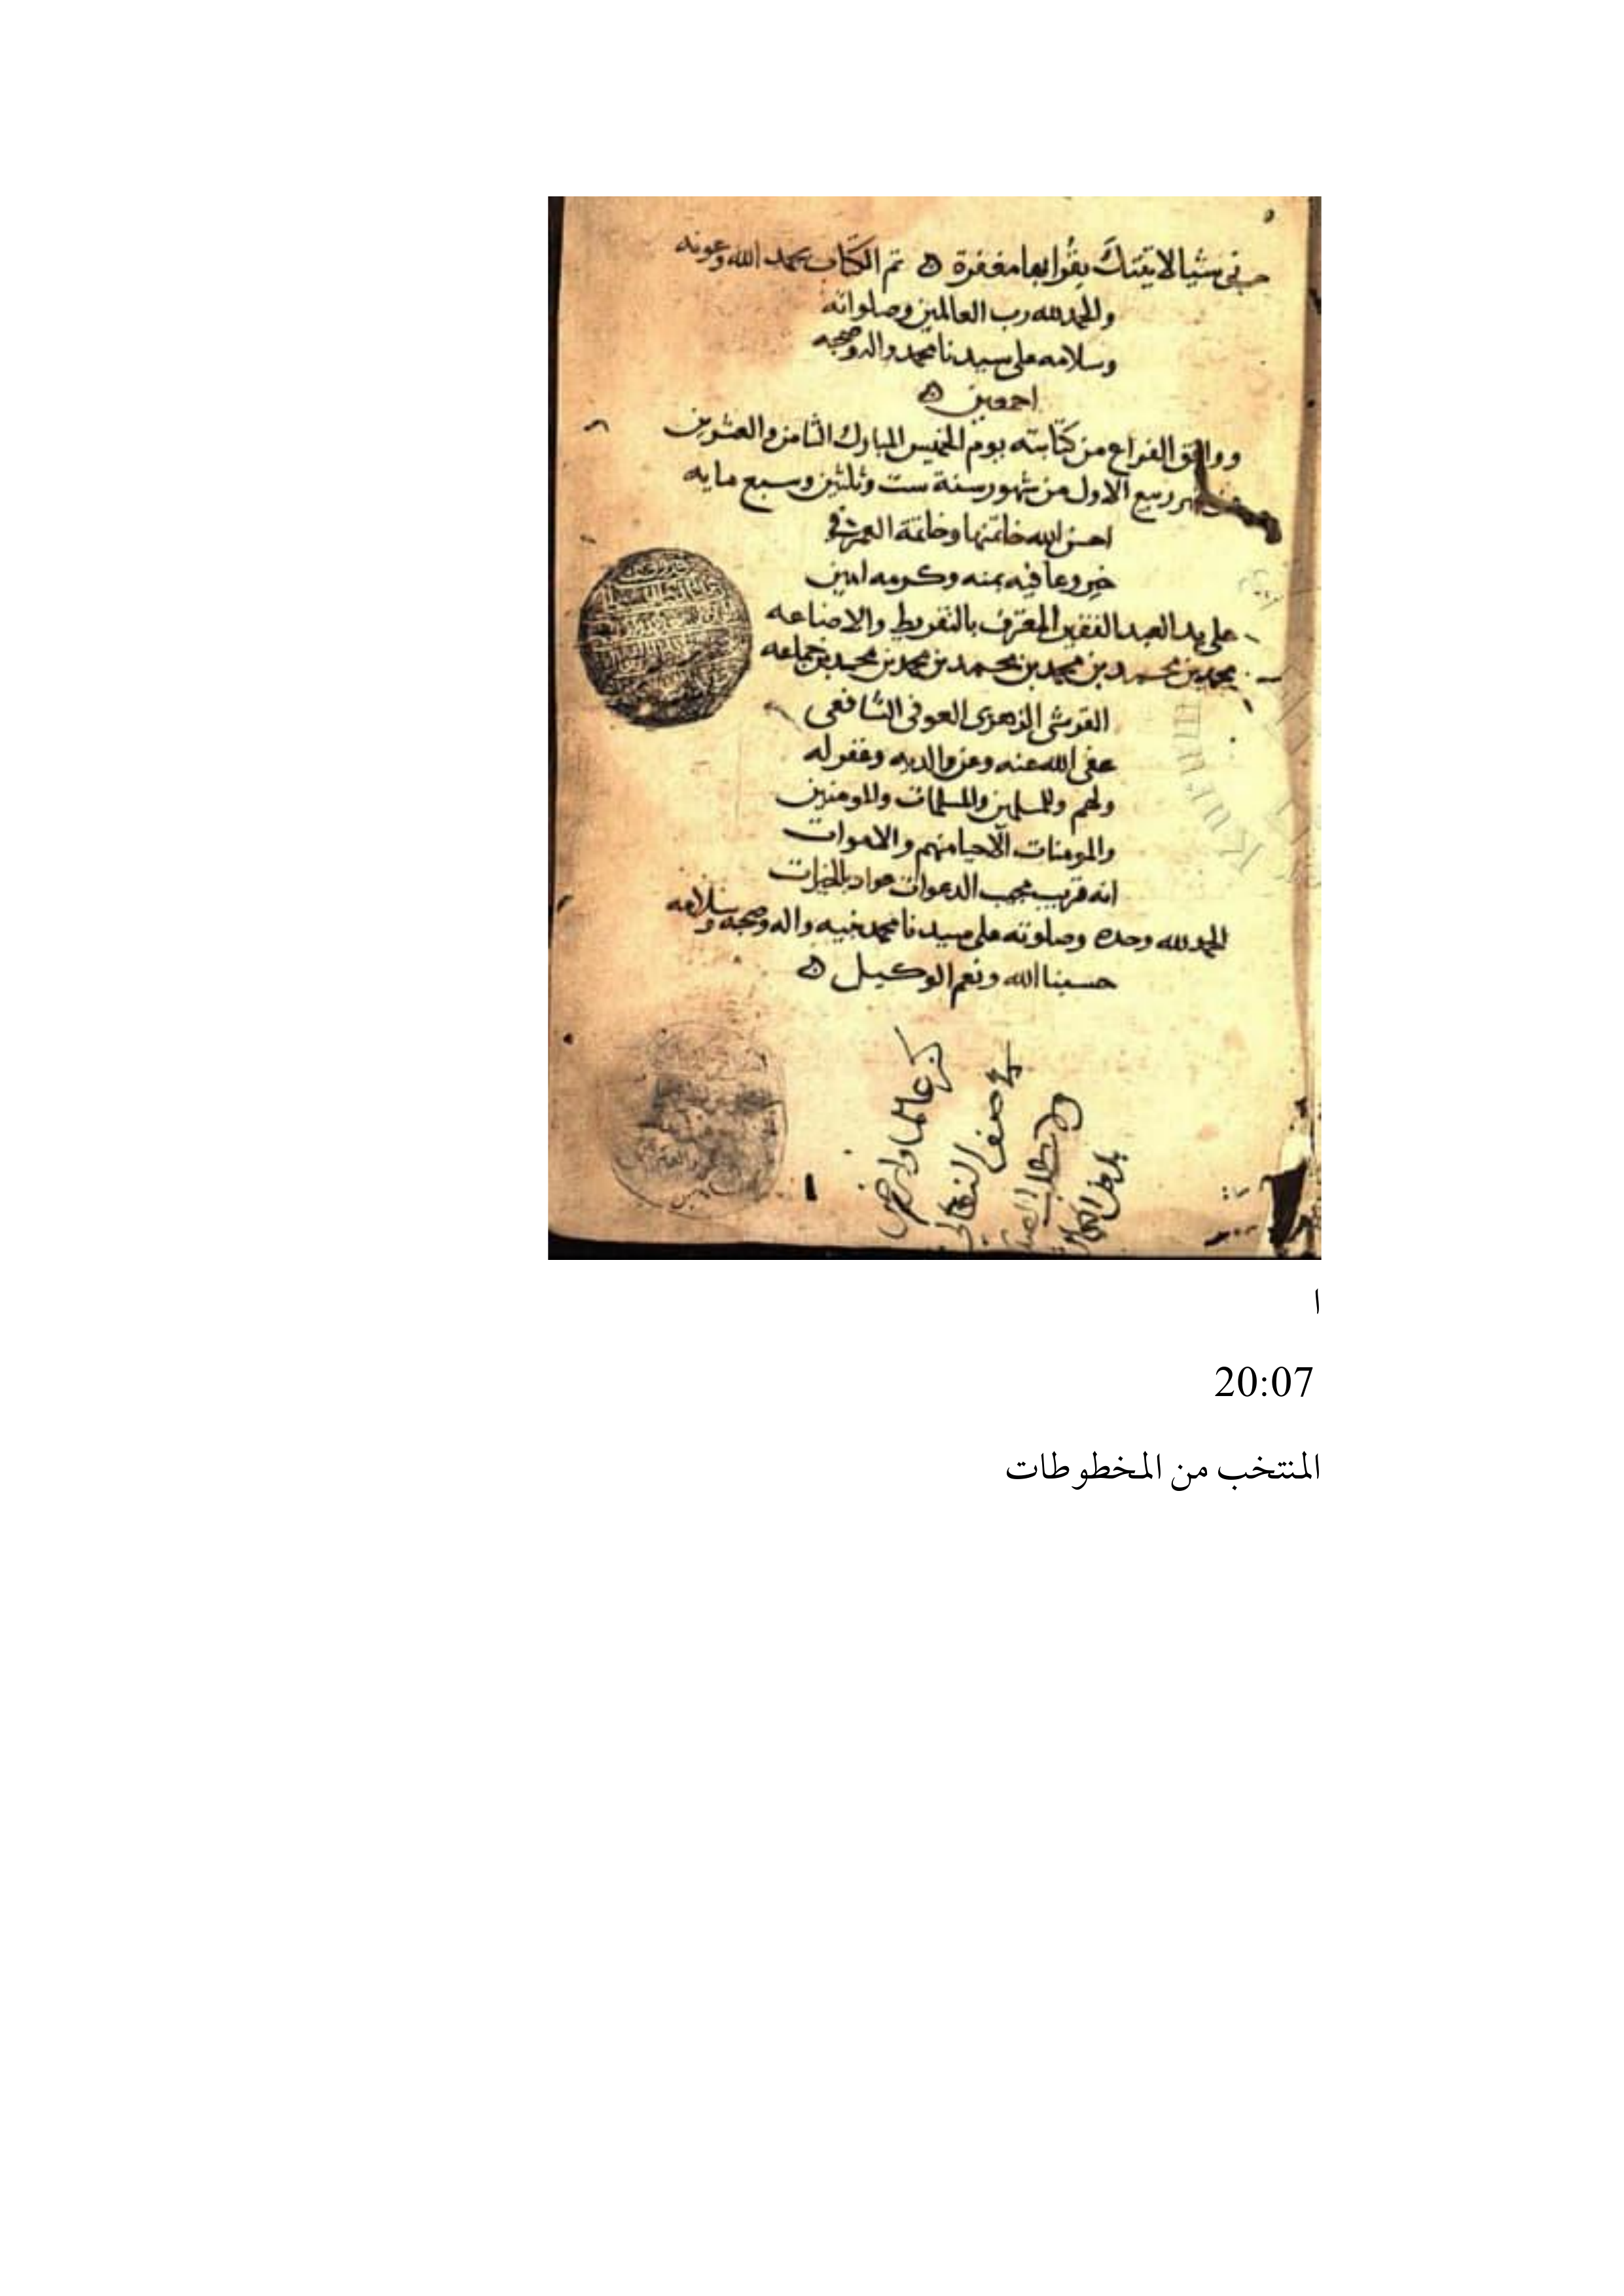 شيا لاتيتك بقرابها مغفرة ه تم الكتاب بحمد الله وعونه
والحمد لله رب العالمين وصلواته
وسلامه على سيدنا محمد واله وصحبه
اجمعين ه
ووافق الفراغ من كتابته يوم الخميس المبارك الثامن والعشرين
من شهر ربيع الاول من شهور سنة ست وثلثين وسبع مايه
احسن الله خاتمتها وخاتمة العمر في
خير وعافيه بمنه وكرمه امين
على يد العبد الفقير المعترف بالتفريط والاضاعه
محمد بن محمد بن محمد بن محمد بن محمد بن محمد بن جماعه
القرشي الزهري العوفي الشافعي
عفى الله عنه وعن والديه وغفر له
ولهم وللمسلمين والمسلمات والمومنين
والمومنات الاحيا منهم والاموات
انه قريب مجيب الدعوات جواد بالخيرات
الحمد لله وحده وصلوته على سيدنا محمد نبيه واله وصحبه وسلامه
حسبنا الله ونعم الوكيل ه
ا
20:07
المنتخب من المخطوطات